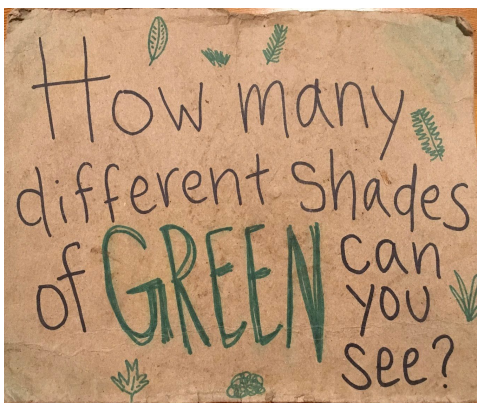 How many
different shades
of GREEN can
you
see?